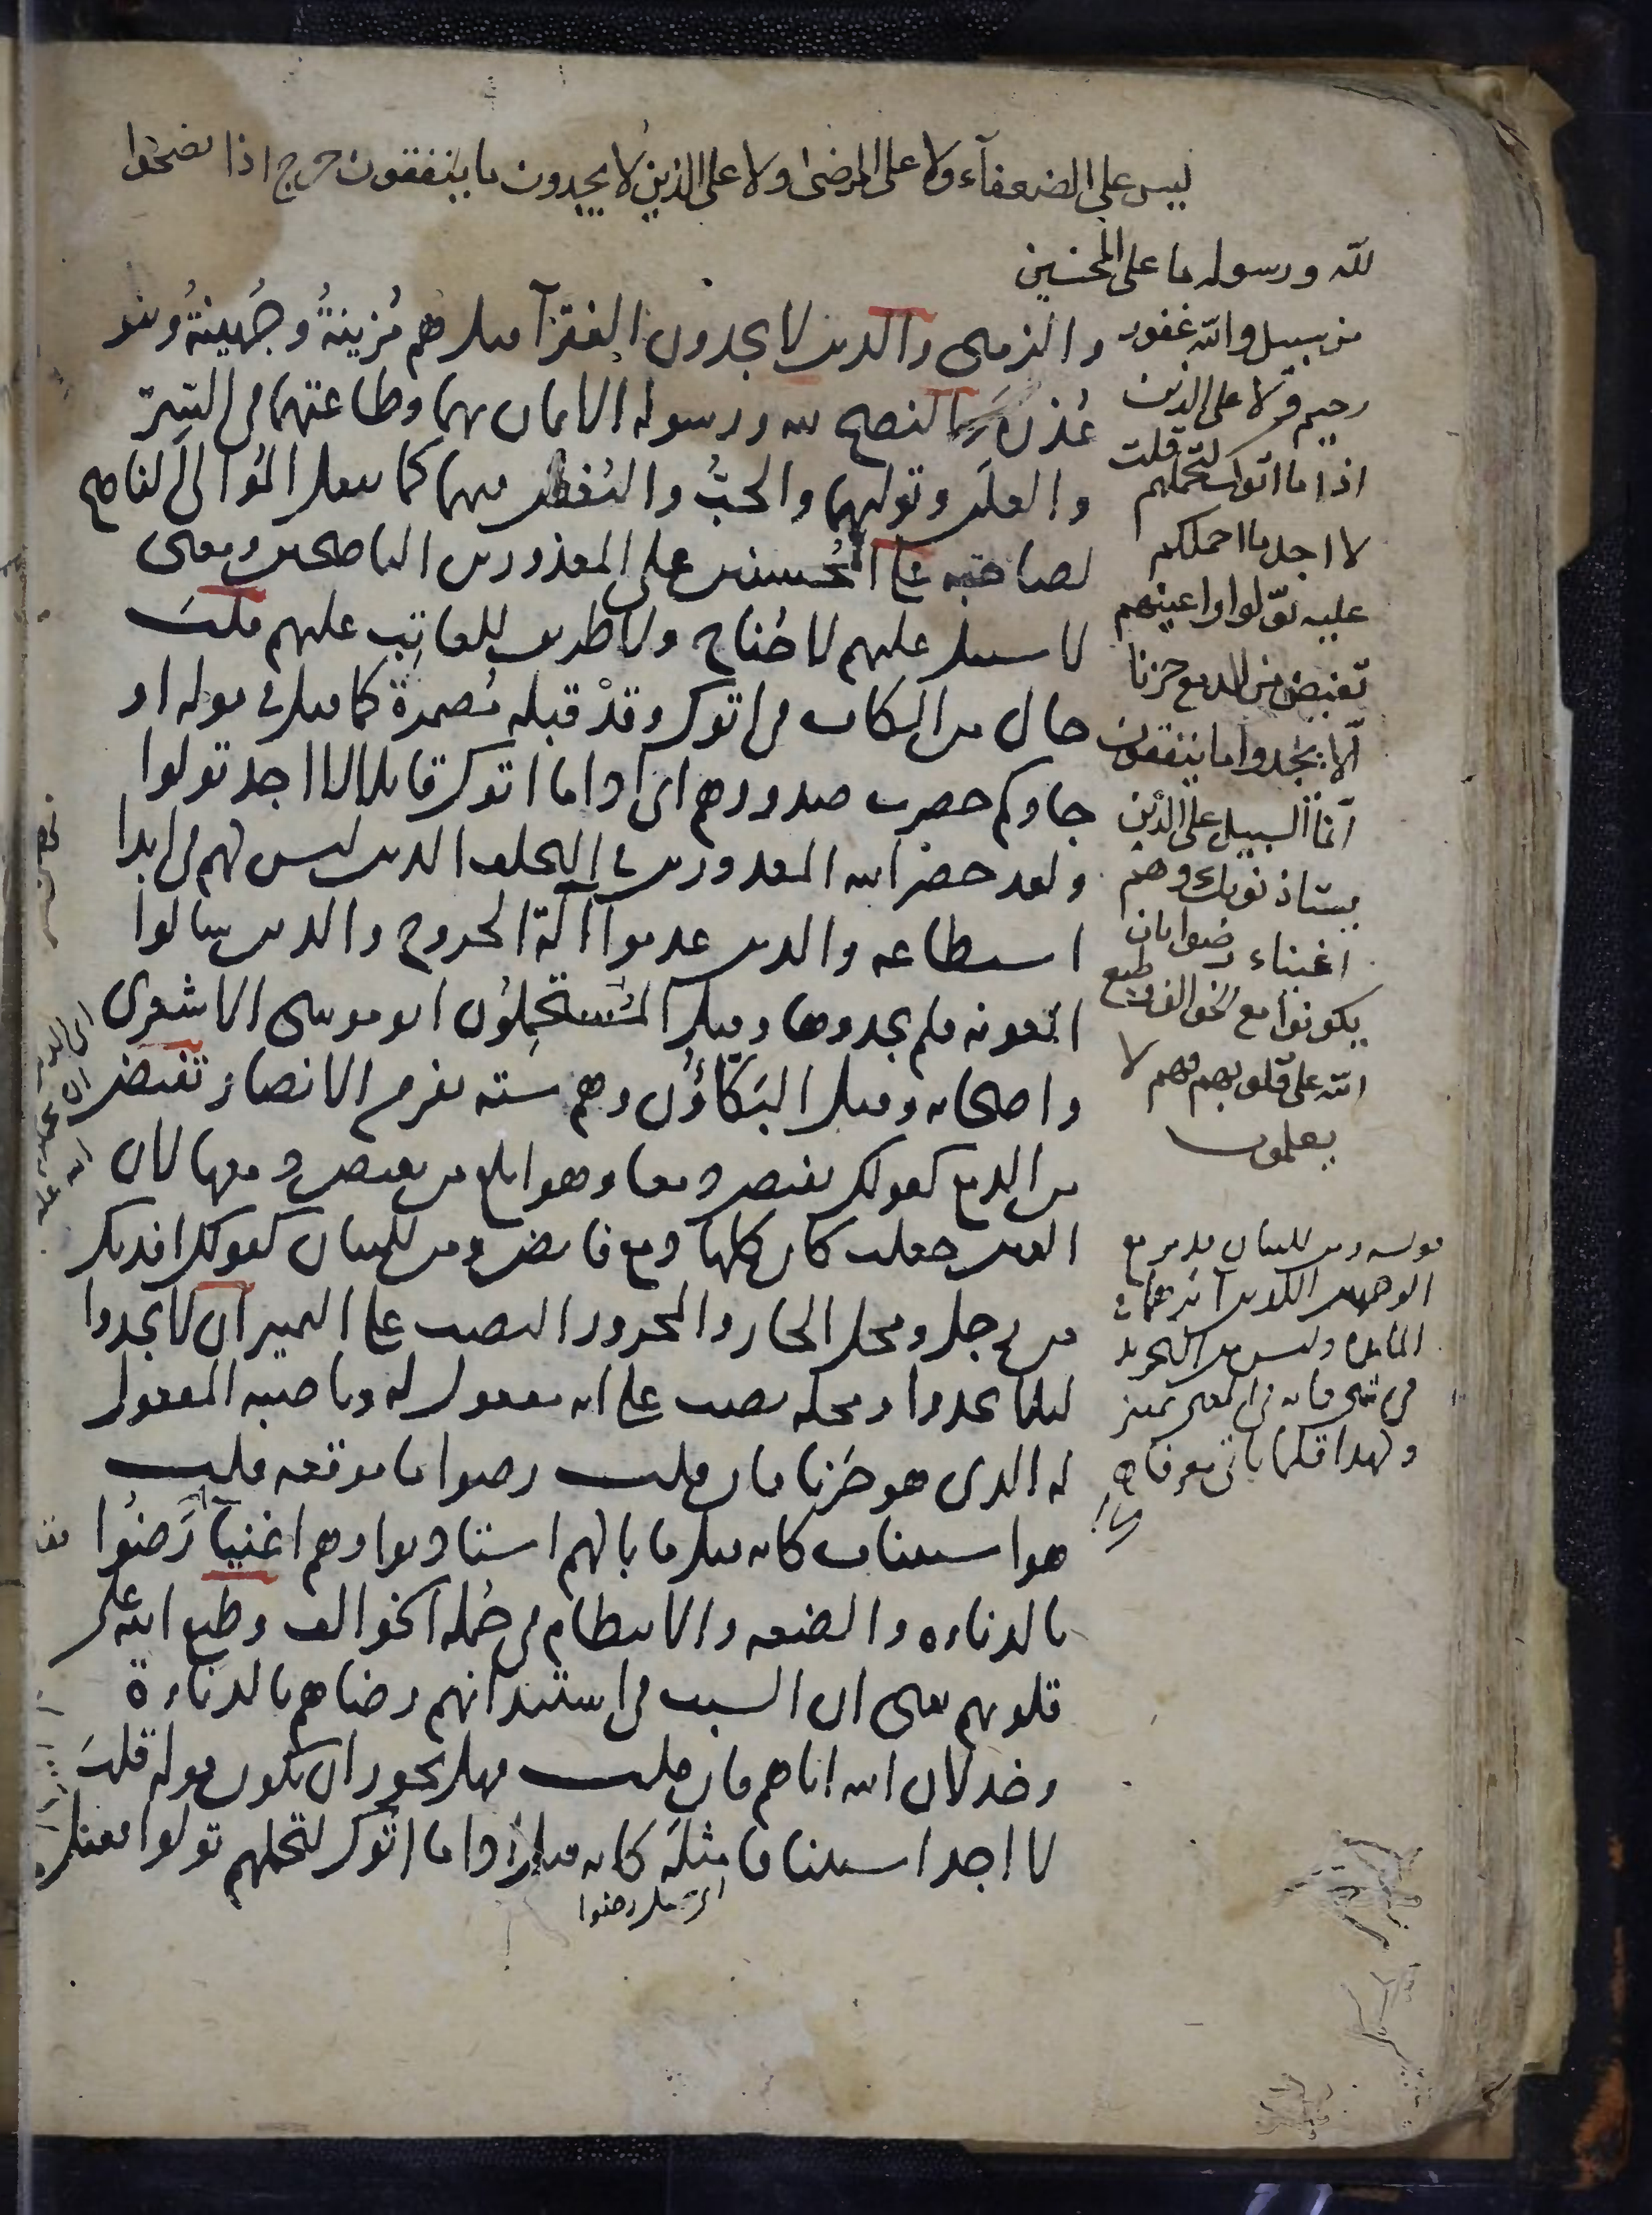 ليس على الضعفآء ولا على المرضى ولا على الذين لا يجدون ما ينفقون حرج اذا نصحوا
لله ورسوله ما على المحسنين
من سبيل والله غفور
رحيم ولا على الذين
اذا ما اتوك لتحملهم قلت
لا اجد ما احملكم
عليه تولوا واعينهم
تفيض من الدمع حزنا
ألا يجدوا ما ينفقون
انما السبيل على الذين
يستاذنونك وهم
اغنياء رضوا بان
يكونوا مع الخوالف وطبع
الله على قلوبهم فهم لا
يعلمون
والزمنى والذين لا يجدون الفقرآ قيل هم مُزينةُ وجُهينةُ وبنو
عُذرة والنصح لله ورسوله الايمان بهما وطاعتهما في السِرّ
والعلن وتوليهما والحبّ والبُغض فيهما كما يفعل المُوالي الناصح
لصاحبه على المُحسنين على المعذورين الناصحين ومعنى
لا سبيل عليهم لا جُناح ولا طريق للعاتِب عليهم قلتَ
حال من الكاف في اتوك وقدْ قبله مُضمرة كما قيل في قوله او
جاوكم حصرت صدورهم اى اذا ما اتوك قايلا لا اجد تولوا
ولقد حصر الله المعذورين في التخلف الذين ليس لهم في ابدا
استطاعه والذين عدموا آلة الخروج والذين سالوا
المعونه فلم يجدوها وقيل المستحمِلُون ابو موسى الاشعرى
واصحابه وقيل البَكّاؤُن وهم سته نفر من الانصار تفيض
من الدمع كقولك تفيض دمعا وهو ابلغ من يفيض دمعها لان
العين جعلت كان كلها دمع فايض ومن للبيان كقولك افديك
من رجل ومحل الجار والمجرور النصب على التمييز ان لا يجدوا
ليلا يجدوا ومحله نصب على انه مفعول له وناصبه المفعول
له الذى هو حَزَنا فان قلت رضوا ما موقعه قلت
هو استيناف كانه قيل ما بالهم استاذنوا وهم اغنيآ رَضُوا
بالدناءه والضعه والانتظام في جُمله الخوالف وطبع الله على
قلوبهم يعنى ان السبب في استيذانهم رضاهم بالدناءة
وخذلان الله اياهم فان قلت فهل يجوز ان يكون قوله قلتَ
لا اجد استينافا مثله كانه قيل اذا ما اتوك لتحملهم تولوا فقيل
اى مثل رضوا
قوله ومن للبيان
المايده وليس من التجريد
في شى فانه في المعنى تمييز